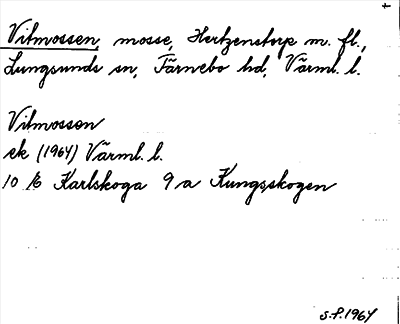 Vitmossen, mosse, Hertzenstorp m. fl.,
Lungsunds sn, Färnebo hd, Värml. l.
Vitmossen
ek (1964) Värml. l.
10 /6 Karlskoga 9 a Kungsskogen
S.P. 1964